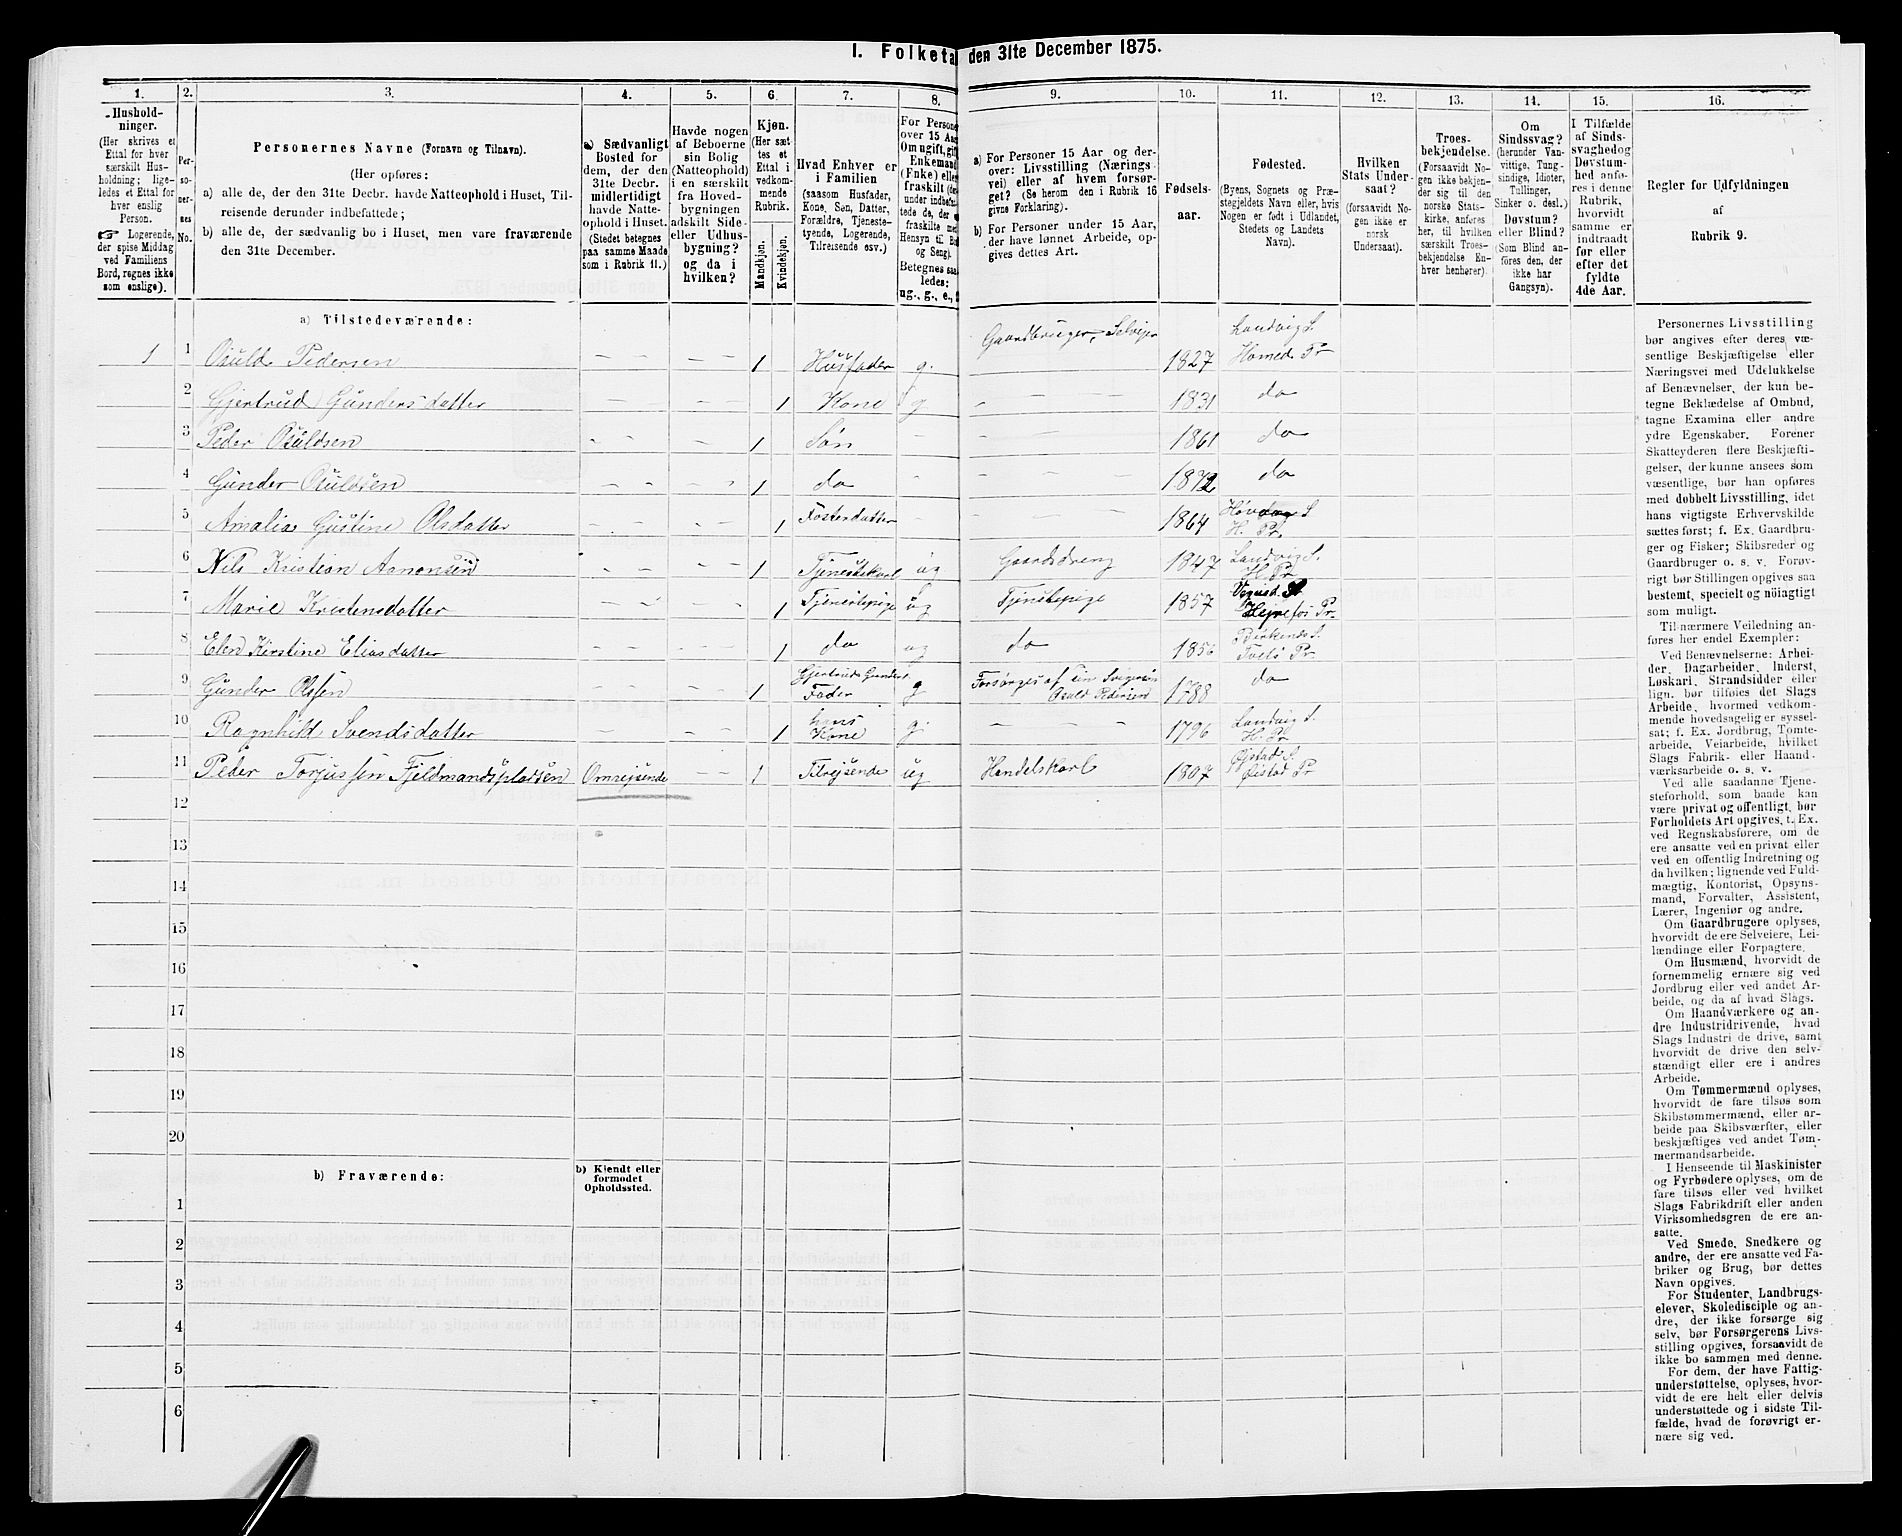 I. Folketæ den 31te December 1875.
1. 2. 3. 4. 5. 6. 7. 8. 9. 10. 11. 12. 13. 14. 15. 16.
Hushold-
ninger.
(Her skrives et
Ettal for hver
særskilt Hus-
holdning; lige-
ledes et Ettal for
hver enslig
Person.
☞ Logerende,
der spise Middag
ved Familiens
Bord, regnes ikke
som enslige).
Per-
so-
ner-
nes
No.
Personernes Navne (Fornavn og Tilnavn).
(Her opføres:
a) alle de, der den 31te Decbr. havde Natteophold i Huset, Til-
reisende derunder indbefattede;
b) alle de, der sædvanlig bo i Huset, men vare fraværende
den 31te December.
a) Sædvanligt
Bosted for
dem, der den
31te Decbr.
midlertidigt
havde Natte-
ophold i Huset.
(Stedet betegnes
paa samme Maade
som i Rubrik 11.)
Havde nogen
af Beboerne
sin Bolig
(Natteophold)
i en særskilt
fra Hoved-
bygningen
adskilt Side-
eller Udhus-
bygning?
og da i
hvilken?
Kjøn.
(Her sæt-
tes et
Ettal i
vedkom-
mende
Rubrik.
Mandkjøn.
Kvindekjøn.
Hvad Enhver er
i Familien
(saasom Husfader,
Kone, Søn, Datter,
Forældre, Tjeneste-
tyende, Logerende,
Tilreisende osv.)
For Persone
over 15 Aa
Om ugift, gif
Enkemand
(Enke) eller
fraskilt (de
under indbe
tede de, der
fraskilte me
Hensyn til Bo
og Seng).
Betegnes saa
ledes:
ug., g., e.,
a) For Personer 15 Aar og der-
over: Livsstilling (Nærings-
vei) eller af hvem forsør-
get? (Se herom den i Rubrik 16
givne Forklaring).
b) For Personer under 15 Aar,
der have lønnet Arbeide, op-
gives dettes Art.
Fødsels-
aar.
Fødested.
(Byens, Sognets og Præ-
stegjeldets Navn eller, hvis
Nogen er født i Udlandet,
Stedets og Landets
Navn).
Hvilken
Stats Under-
saat?
(forsaavidt No-
gen ikke er
norsk
Undersaat).
Troes-
bekjendelse.
(Forsaavidt No-
gen ikke bekjen-
der sig til den
norske Stats-
kirke, anføres
her, til hvilken
særskilt Troes-
bekjendelse En-
hver henhører).
Om
Sindssvag?
(herunder Van-
vittige, Tung-
sindige, Idioter,
Tullinger,
Sinker o. desl.)
Døvstum?
eller Blind?
(Som Blind an-
føres den, der
ikke har
Gangsyn).
I Tilfælde
af Sinds-
svaghed og
Døvstum-
hed anfø-
res i denne
Rubrik,
hvorvidt
samme er
indtraadt
før eller
efter det
fyldte
4de Aar.
Regler for Udfyldningen
af
Rubrik 9.
a) Tilstedeværende:
1 1 Osuld Pedersen 1 Husfader g. Gaardbruger, Selveier 1827 Landvig S. Homeds Pr
2 Gjertrud Gundersdatter 1 Kone g 1831 do
3 Peder Osuldsen 1 Søn 1861 do
4 Gunder Osuldsen 1 do 1872 do
5 Amalia Gustine Olsdatter 1 Fosterdatter 1864 S H. Pr
6 Nils Kristian Aanonsen 1 Tjenestekarl ug Gaardsdreng 1847 Landvig S. H. Pr
7 Marie Kristensdatter 1 Tjenestepige ug Tjenstepige 1857 Pr.
8 Elen Kirstine Eliasdatter 1 do ug do 1856 Birkenæs S. Tvets Pr
9 Gunder Olsen 1 Gjertruds Fader g Forsørges af sin Svigersøn Osuld Pedersen 1788 do
10 Ragnhild Svendsdatter 1 hans Kone g. 1796 Landvig S. H. Pr
11 Peder Torjussen Fjeldmandspladsen Omreisende 1 Tilreisende ug Handelskarl 1807 Øistad S. Øistad Pr
12
13
14
15
16
17
18
19
20
b) Fraværende:
b) Kjendt eller
formodet
Opholdssted.
1
2
3
4
5
6
Personernes Livsstilling
bør angives efter deres væ-
sentlige Beskjæftigelse eller
Næringsvei med Udelukkelse
af Benævnelser, der kun be-
tegne Beklædelse af Ombud,
tagne Examina eller andre
ydre Egenskaber. Forener
Skatteyderen flere Beskjæfti-
gelser, der kunne ansees som
væsentlige, bør han opføres
med dobbelt Livsstilling, idet
hans vigtigste Erhvervskilde
sættes først; f. Ex. Gaardbru-
ger og Fisker; Skibsreder og
Gaardbruger o. s. v. Forøv-
rigt bør Stillingen opgives saa
bestemt, specielt og nøiagtigt
som muligt.
Til nærmere Veiledning an-
føres her endel Exempler:
Ved Benævnelserne: Arbei-
der, Dagarbeider, Inderst,
Løskarl, Strandsidder eller
lign. bør tilføies det Slags
Arbeide, hvormed vedkom-
mende hovedsagelig er syssel-
sat; f. Ex. Jordbrug, Tomte-
arbeide, Veiarbeide, hvilket
Slags Fabrik- eller Haand-
værksarbeide o. s. v.
Ved alle saadanne Tjene-
steforhold, som baade kan
være privat og offentligt, bør
Forholdets Art opgives, t. Ex.
ved Regnskabsførere, om de
ere ansatte ved en privat eller
ved en offentlig Indretning og
da hvilken; lignende ved Fuld-
mægtig, Kontorist, Opsyns-
mand, Forvalter, Assistent,
Lærer, Ingeniør og andre.
Om Gaardbrugere oplyses,
hvorvidt de ere Selveiere, Lei-
lændinge eller Forpagtere.
Om Husmænd, hvorvidt de
fornemmelig ernære sig ved
Jordbrug eller ved andet Ar-
beide, og da af hvad Slags.
Om Haandværkere og an-
dre Industridrivende, hvad
Slags Industri de drive, samt
hvorvidt de drive den selv-
stændigt eller ere i andres
Arbeide.
Om Tømmermænd oplyses,
hvorvidt de fare tilsøs som
Skibstømmermænd, eller ar-
beide paa Skibsværfter, eller
beskjæftiges ved andet Tøm-
mermandsarbeide.
I Henseende til Maskinister
og Fyrbødere oplyses, om de
fare tilsøs eller ved hvilket
Slags Fabrikdrift eller anden
Virksomhedsgren de ere an-
satte.
Ved Smede, Snedkere og
andre, der ere ansatte ved Fa-
briker og Brug, bør dettes
Navn opgives.
For Studenter, Landbrugs-
elever, Skoledisciple og an-
dre, der ikke forsørge sig
selv, bør Forsørgerens Livs-
stilling opgives, forsaavidt de
ikke bo sammen med denne.
For dem, der have Fattig-
understøttelse, oplyses, hvor-
vidt de ere helt eller delvis
understøttede og i sidste Til-
fælde, hvad de forøvrigt er-
nære sig ved.